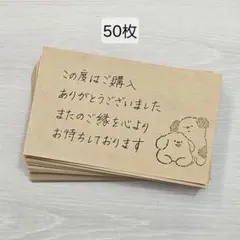 50枚
この度はご購入
ありがとうございました
またのご縁を心より
お待ちしております